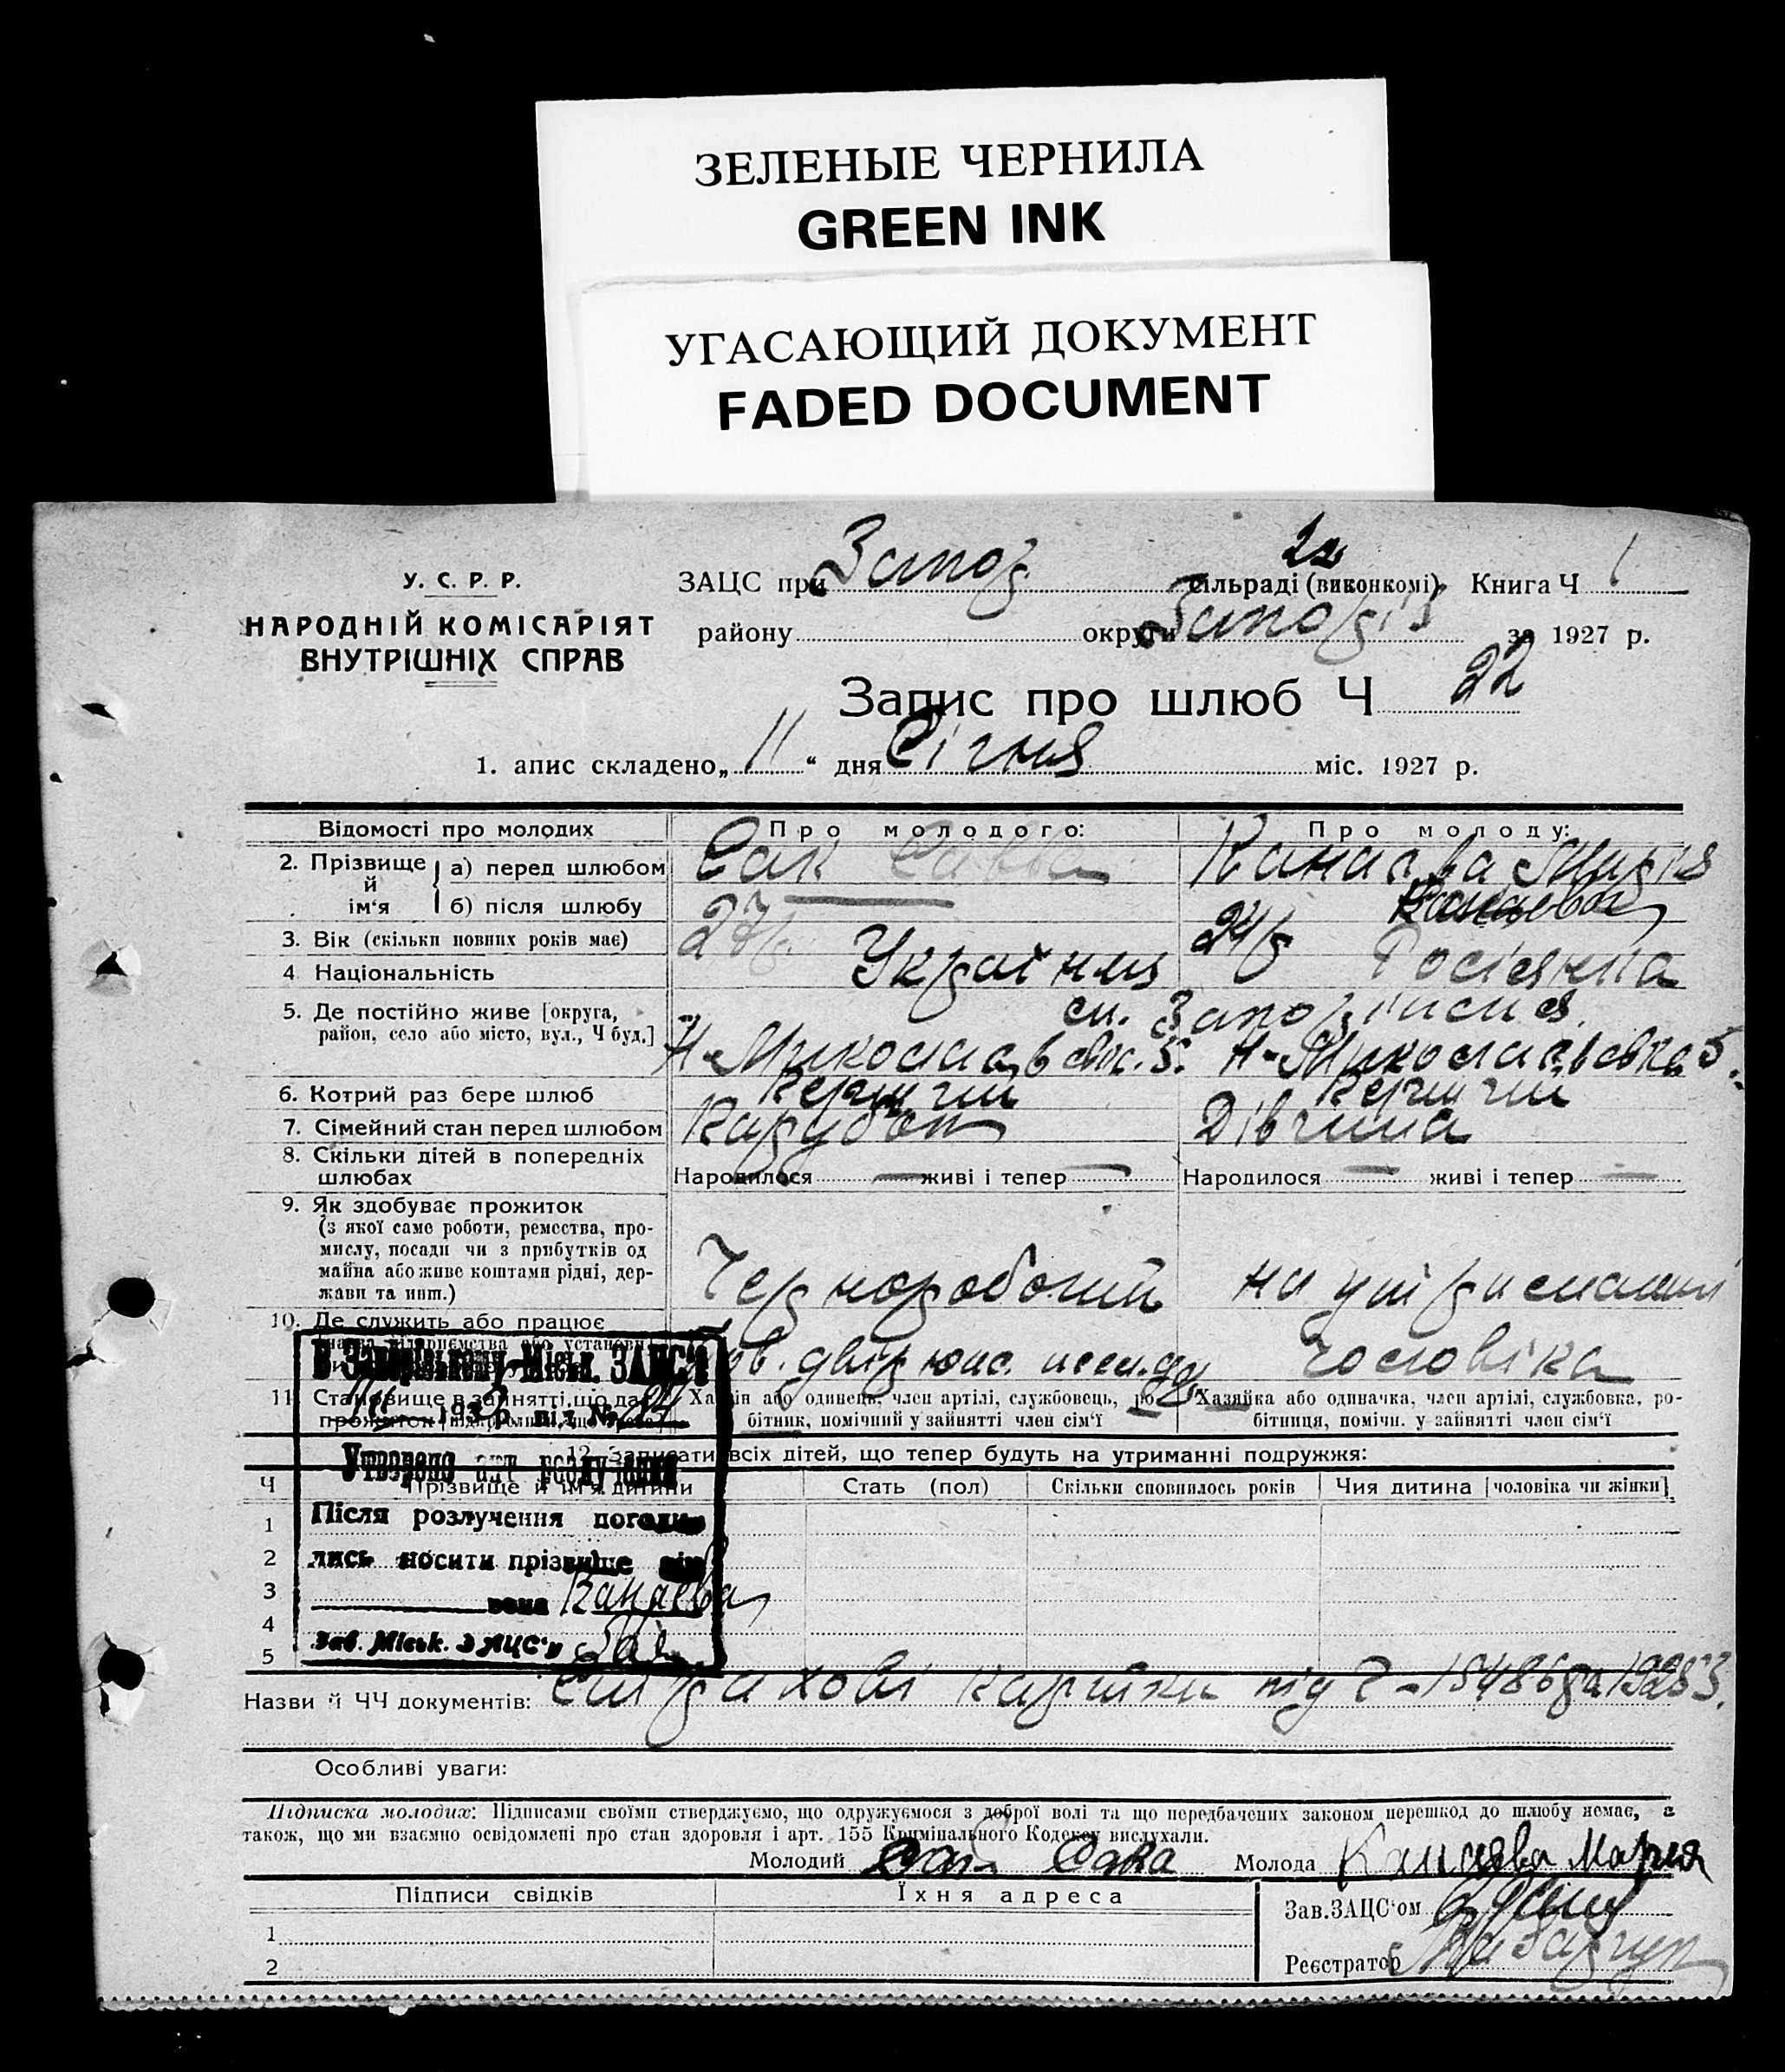 ЗЕЛЕНЫЕ ЧЕРНИЛА
GREEN INK
УГАСАЮЩИЙ ДОКУМЕНТ
FADED DOCUMENT
У. С. Р. Р.
НАРОДНІЙ КОМІСАРІЯТ
ВНУТРІШНІХ СПРАВ
ЗАЦС при Запор сільраді (виконкомі) Книга Ч 1
району округи за 1927 р.
Запис про шлюб Ч 22
1. апис складено „ 11 “ дня Січня міс. 1927 р.
Відомості про молодих Про молодого: Про молоду:
2. Прізвище й ім'я а) перед шлюбом Сак Савва Канаєва Марія
б) після шлюбу Канаєва
3. Вік (скільки повних років має) 27 р 24 р
4 Національність Українець Росіянка
5. Де постійно живе [округа, ст. Запоріжжя
район, село або місто, вул., Ч буд.] Н-Миколаївськ. 5. Н-Миколаївська 5.
6. Котрий раз бере шлюб Перший Перший
7. Сімейний стан перед шлюбом Парубок Дівчина
8. Скільки дітей в попередніх
шлюбах Народилося — живі і тепер — Народилося — живі і тепер —
9. Як здобуває прожиток
(з якої саме роботи, ремества, про-
мислу, посади чи з прибутків од
майна або живе коштами рідні, дер-
жави та инш.) Черноробочий на утриманні
10. Де служить або працює чоловіка
11. Становище в занятті, що дає Хазяїн або одинець, член артілі, службовець, ро- Хазяйка або одиначка, член артілі, службовка, ро-
прожиток бітник, помічний у зайнятті член сім'ї бітниця, помічн. у зайнятті член сім'ї
12. Записати всіх дітей, що тепер будуть на утриманні подружжя:
Ч Прізвище й ім'я дитини Стать (пол) Скільки сповнилось років Чия дитина [чоловіка чи жінки]
1
2
3
4
5
В Запорізькому Міськ. ЗАЦС'і
193 р. під №
Утворено акт розлучення
Після розлучення погоди-
лись носити прізвище він
вона Канаєва
Зав. Міськ. ЗАЦС'у
Назви й ЧЧ документів: Страхові картки під Ч-15486 та 19253.
Особливі уваги:
Підписка молодих: Підписами своїми стверджуємо, що одружуємося з доброї волі та що передбачених законом перешкод до шлюбу немає, а
також, що ми взаємно освідомлені про стан здоровля і арт. 155 Кримінального Кодексу вислухали.
Молодий Сак Сава Молода Канаєва Мария
Підписи свідків Їхня адреса
Зав.ЗАЦС'ом
1
Реєстратор
2